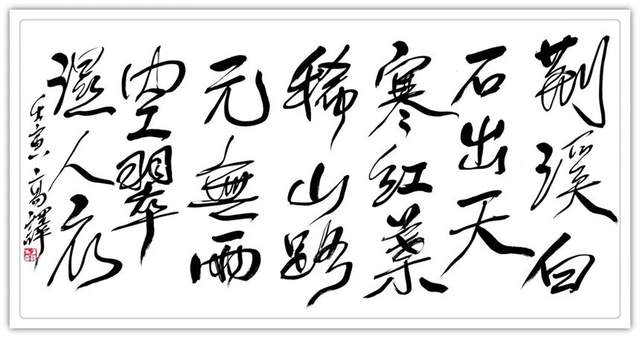 荆溪白
石出天
寒紅葉
稀山路
元無雨
空翠
濕人衣
壬寅高譯